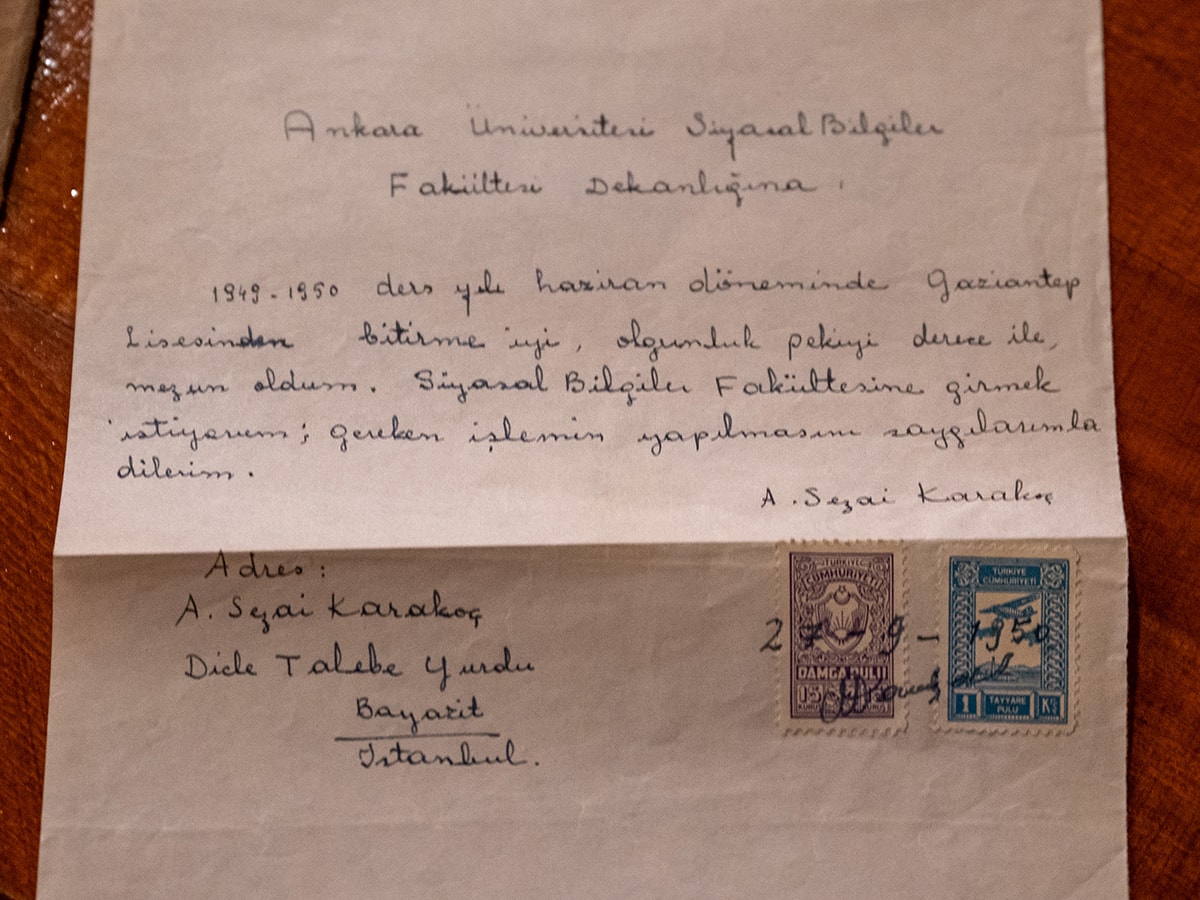 Ankara Üniversitesi Siyasal Bilgiler
Fakültesi Dekanlığına,
1949-1950 ders yılı haziran döneminde Gaziantep
Lisesinden bitirme iyi, olgunluk pekiyi derece ile,
mezun oldum. Siyasal Bilgiler Fakültesine girmek
istiyorum; gereken işlemin yapılmasını saygılarımla
dilerim.
A. Sezai Karakoç
Adres:
A. Sezai Karakoç
Dicle Talebe Yurdu
Bayazit
İstanbul.
TÜRKİYE
CÜMHURİYETİ
DAMGA PULU
15
KURUŞ
KURUŞ
TÜRKİYE
CÜMHURİYETİ
1
TAYYARE
PULU
KŞ
27-9-1950